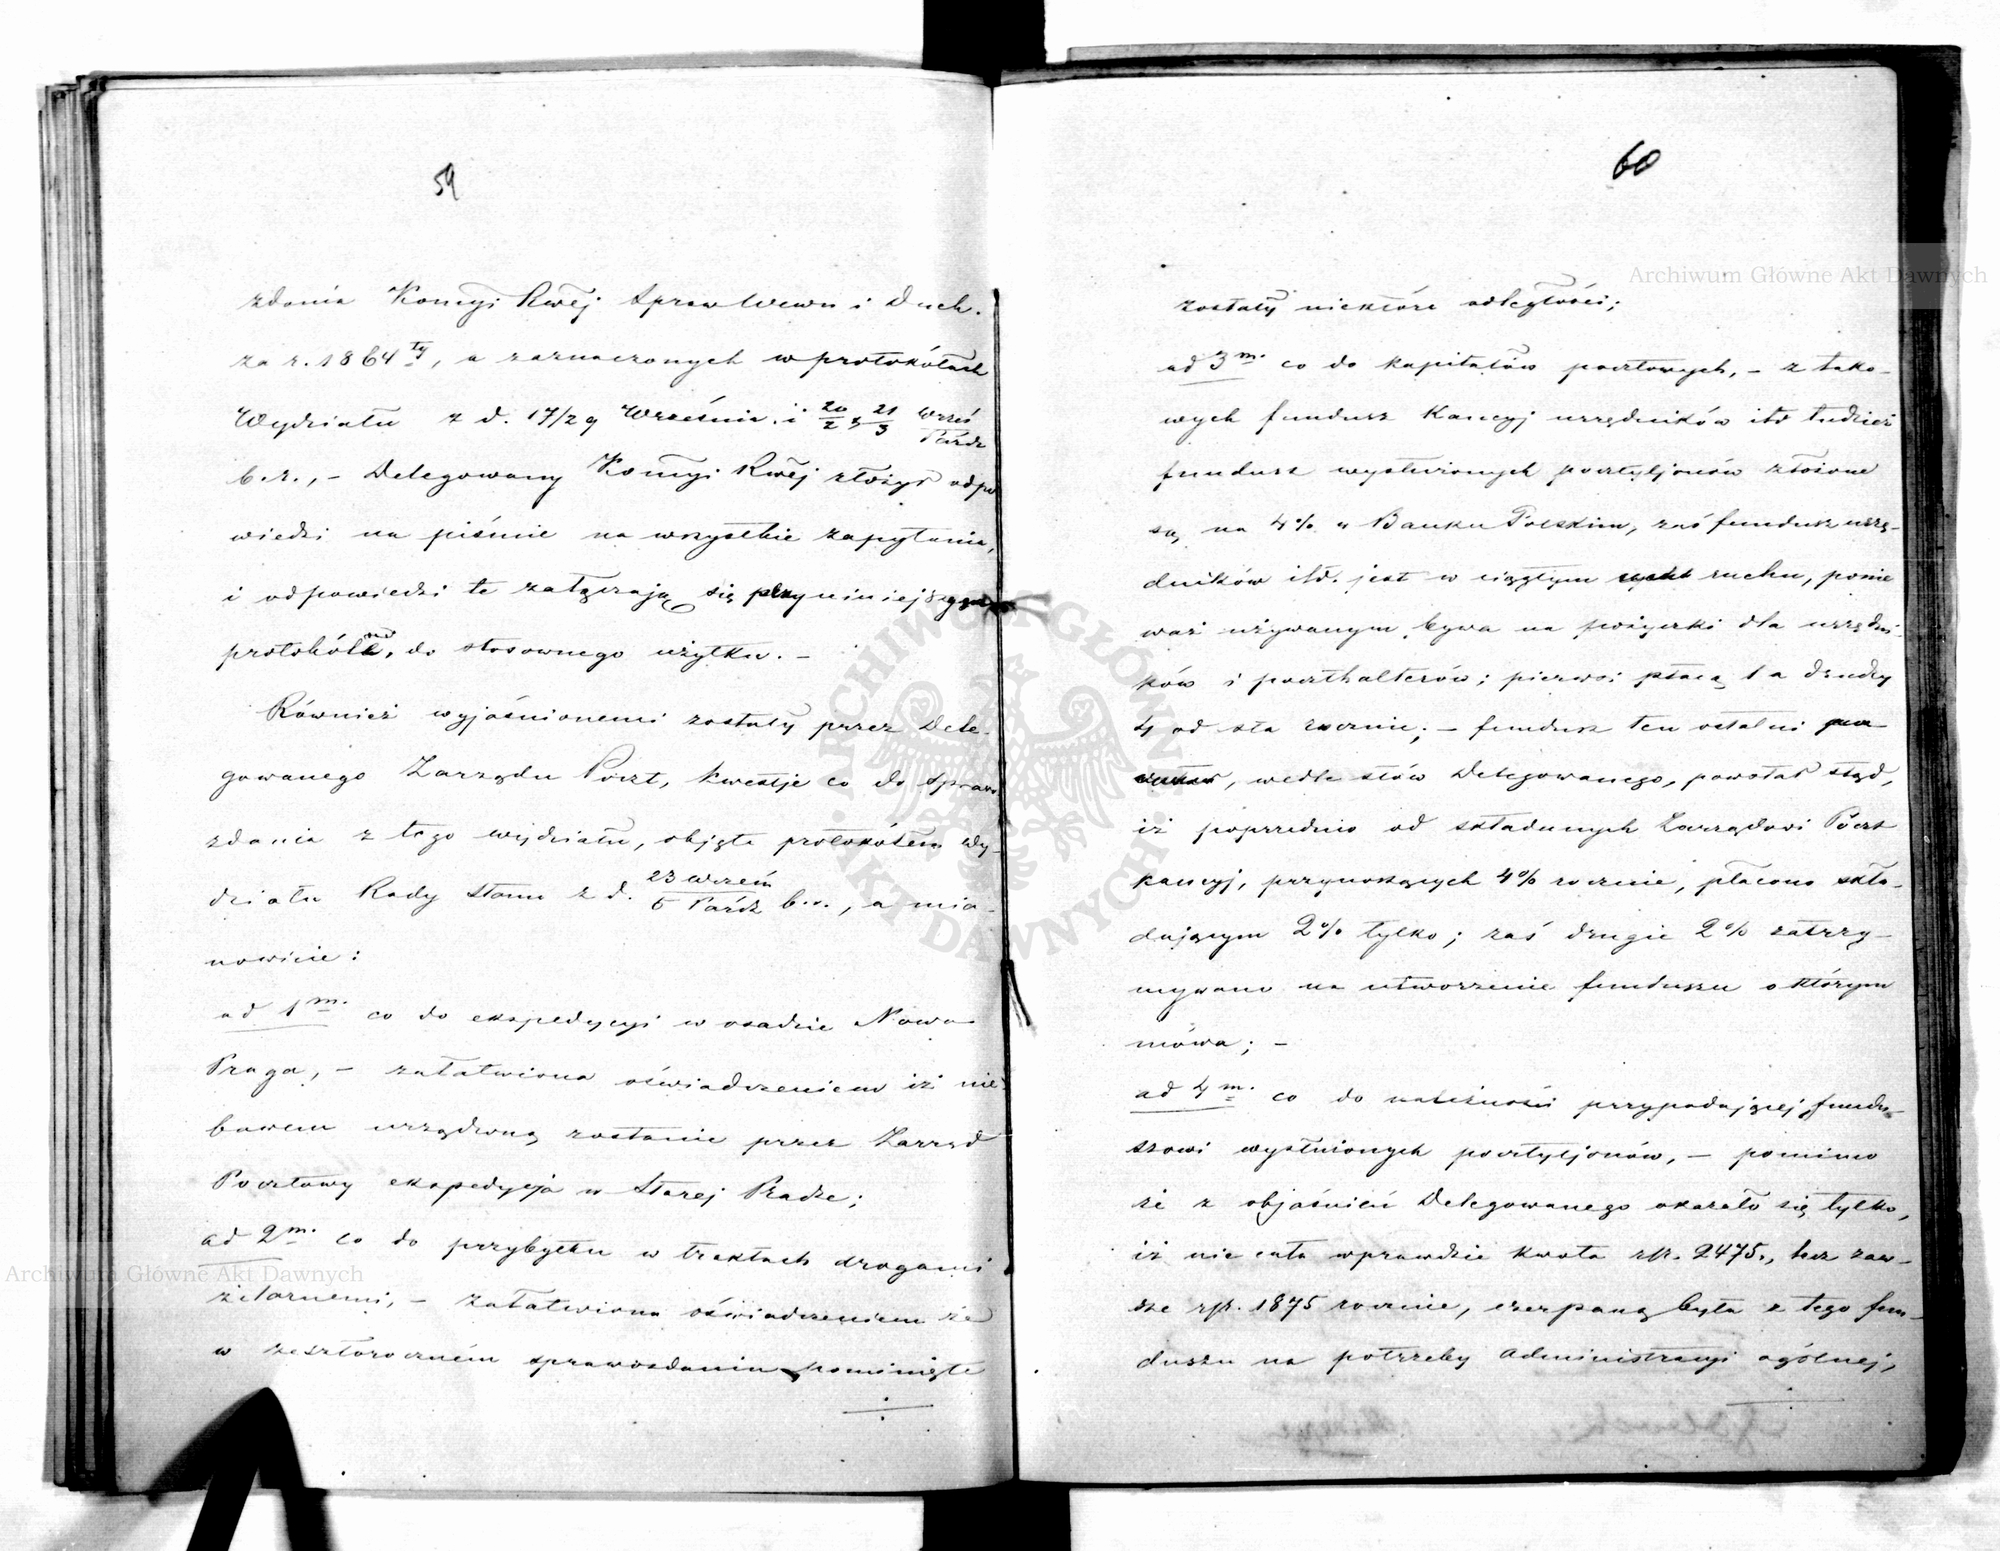 59
zdania Komyi Rwéj Spraw Wewn i Duch.
za r. 1864 ty, a zaznaczonych w protokółach
Wydziału z d. 17/29 Września i 20/2, 21/3 Wrześ/Paźdz
b.r., – Delegowany Komyi Rwéj złożył odpo
wiedzi na piśmie na wszystkie zapytania,
i odpowiedzi te załączają się przy niniejszym
protokóle, do stosownego użytku. –
Również wyjaśnionemi zostały przez Dele-
gowanego Zarządu Poczt, kwestje co do spraw
zdania z tego wydziału, objęte protokółem Wy-
działu Rady Stanu z d. 23 Wrześ/5 Paźdz b.r., a mia-
nowicie:
ad 1m. co do ekspedycyi w osadzie Nowa
Praga, – załatwiona oświadczeniem iż nie-
bawem urządzoną zostanie przez Zarząd
Pocztowy ekspedycja w Starej Pradze;
ad 2m. co do przybytku w traktach drogami
żelaznemi, – załatwiona oświadczeniem że
w zeszłoroczném sprawozdaniu pominięte
60
zostały niektóre odległości;
ad 3m. co do kapitałów pocztowych, – z tako-
wych fundusz Kaucyj urzędników itd tudzież
fundusz wysłużonych pocztyljonów złożone
są, na 4% w Banku Polskim, zaś fundusz urzę-
dników itd. jest w ciągłym ruchu, ponie
waż używanym bywa na pożyczki dla urzędni-
ków i poczthalterów; pierwsi płacą 1 a drudzy
4 od sta rocznie; – fundusz ten ostatni
, wedle słów Delegowanego, powstał stąd,
iż poprzednio od składanych Zarządowi Poczt
kaucyj, przynoszących 4% rocznie, płacono skła-
dającym 2% tylko; zaś drugie 2% zatrzy-
mywano na utworzenie funduszu o którym
mówa; –
ad 4m. co do należności przypadającej fundu-
szowi wysłużonych pocztyljonów, – pomimo
że z objaśnień Delegowanego okazało się tylko,
iż nie cała wprawdzie kwota rsr. 2475., lecz zaw-
sze rsr. 1875 rocznie, czerpaną była z tego fun-
duszu na potrzeby Administracyi ogólnej,
Archiwum Główne Akt Dawnych
Archiwum Główne Akt Dawnych
ARCHIWUM GŁÓWNE AKT DAWNYCH